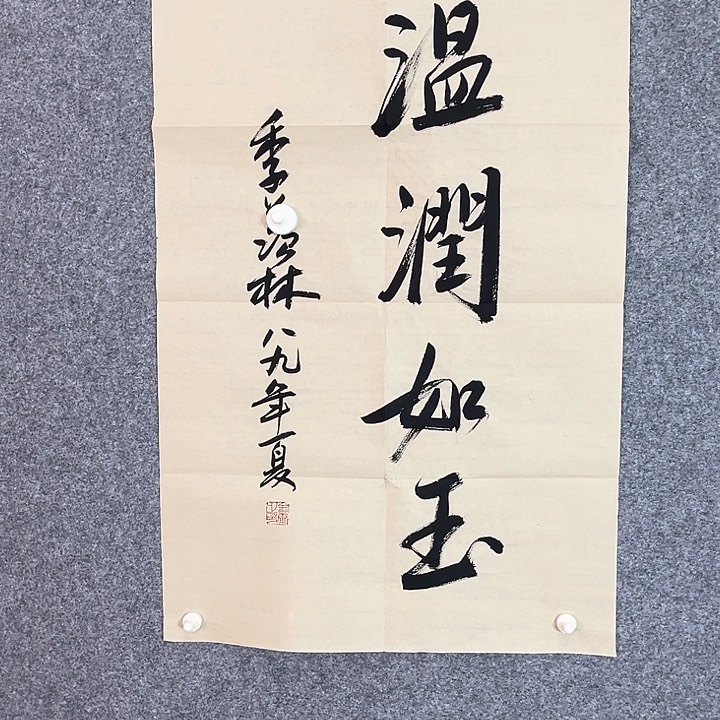 温潤如玉
季羡林 八九年夏